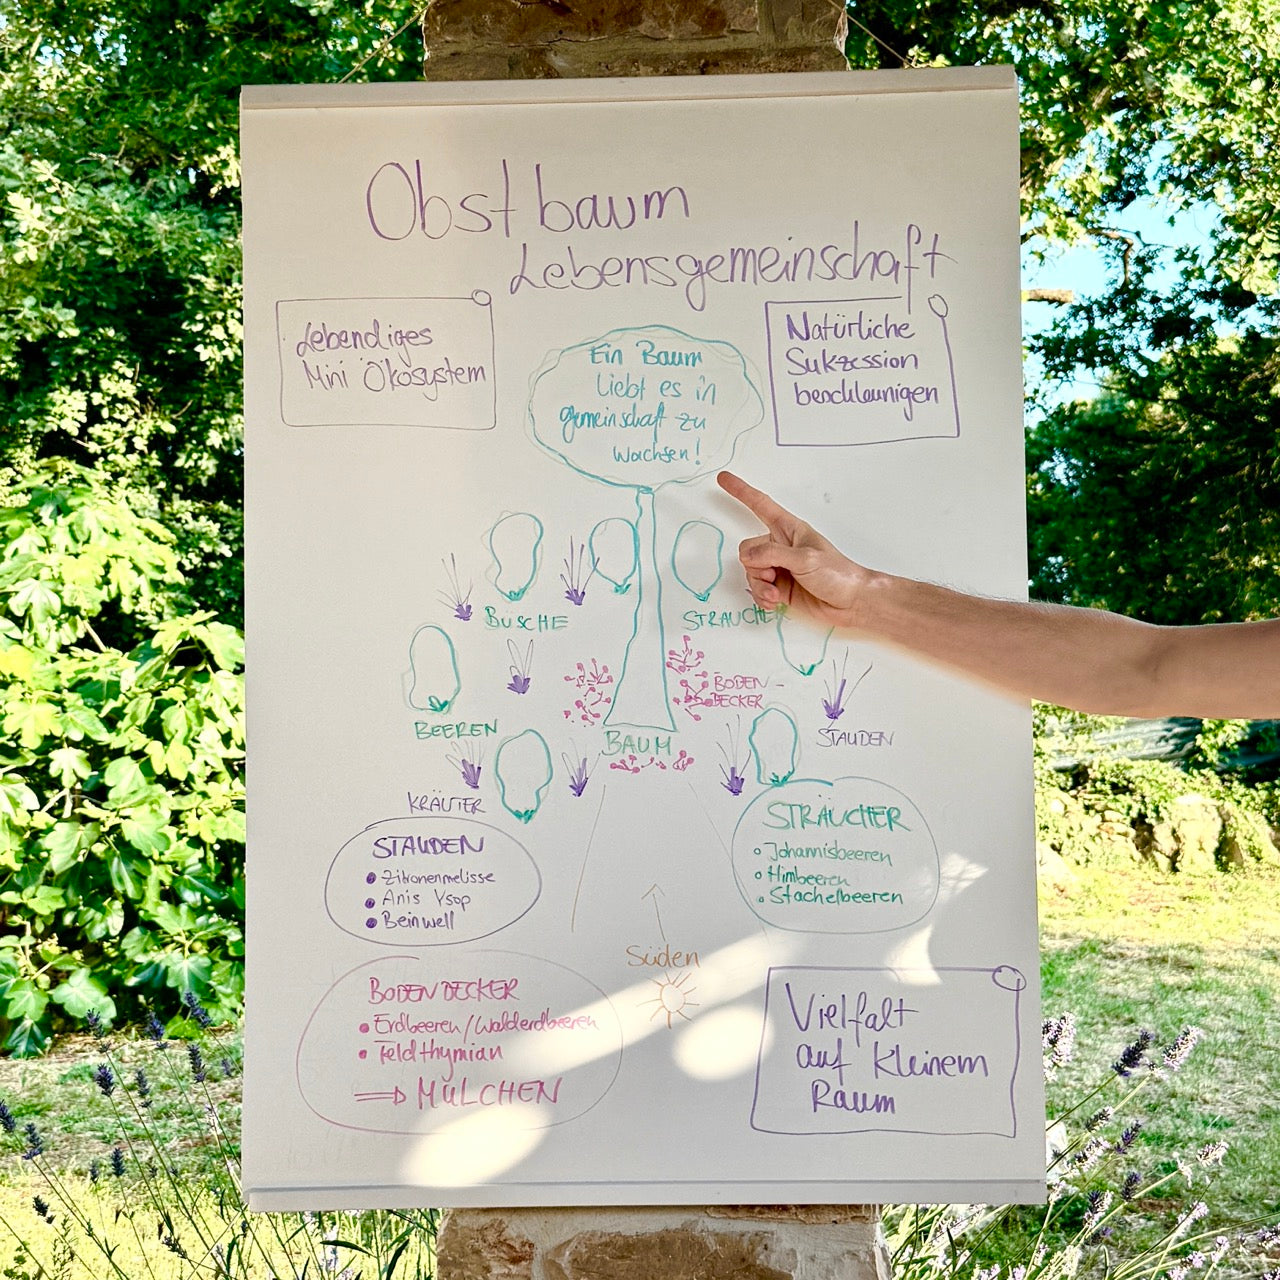 Obstbaum
Lebensgemeinschaft
Lebendiges
Mini Ökosystem
Natürliche
Sukzession
beschleunigen
Ein Baum
liebt es in
gemeinschaft zu
wachsen!
BÜSCHE
STRÄUCHER
BODEN-
DECKER
BEEREN
STAUDEN
BAUM
KRÄUTER
STAUDEN
• Zitronenmelisse
• Anis Ysop
• Beinwell
STRÄUCHER
• Johannisbeeren
• Himbeeren
• Stachelbeeren
Süden
BODENDECKER
• Erdbeeren/Walderdbeeren
• Feldthymian
⇒ MULCHEN
Vielfalt
auf kleinem
Raum